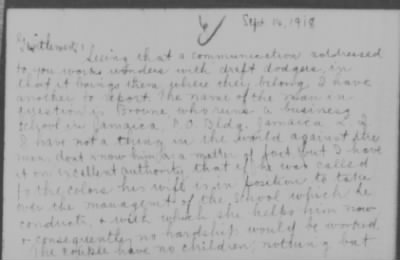 Sept. 16, 1918
Gentlemen:
Seeing that a communication addressed
to you works wonders with draft dodgers, in
that it brings them where they belong, I have
another to report. The name of the man in
question is Browne who runs a business
school in Jamaica, P.O. Bldg. Jamaica
I have not a thing in the world against the
man, don't know him, as a matter of fact but I have
it on excellent authority that if he was called
to the colors his wife is in position to take
over the management of the school which he
conducts, & with which she helps him now
& consequently no hardship would be worked.
The couple have no children, nothing but